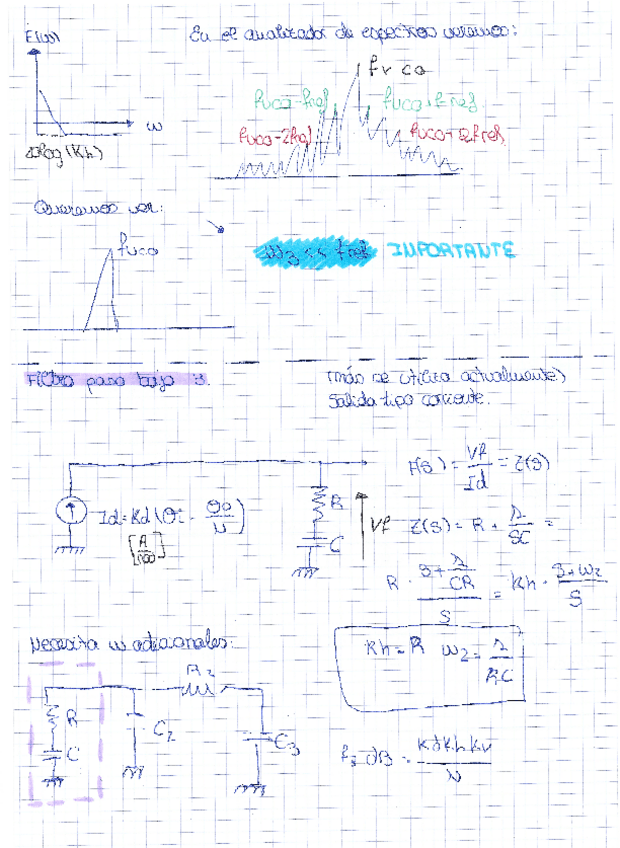 En el analizador de espectros veremos:
ω
fvco
fvco-fref
fvco+fref
fvco-2fref
fvco+2fref
Queremos ver:
fvco
ω3 << fref IMPORTANTE
Filtro paso bajo 3.
(más se utiliza actualmente)
Salida tipo corriente.
F(s) = Vf/Id = Z(s)
Id = Kd (θi - θo/N)
[A/rad]
R
C
Vf
Z(s) = R + 1/SC =
R · (S + 1/CR)/S = Kh · (S + ω2)/S
Kh = R ω2 = 1/RC
Necesita ω adicionales:
R
C
C2
C3
f-3dB = KdKhKv/N